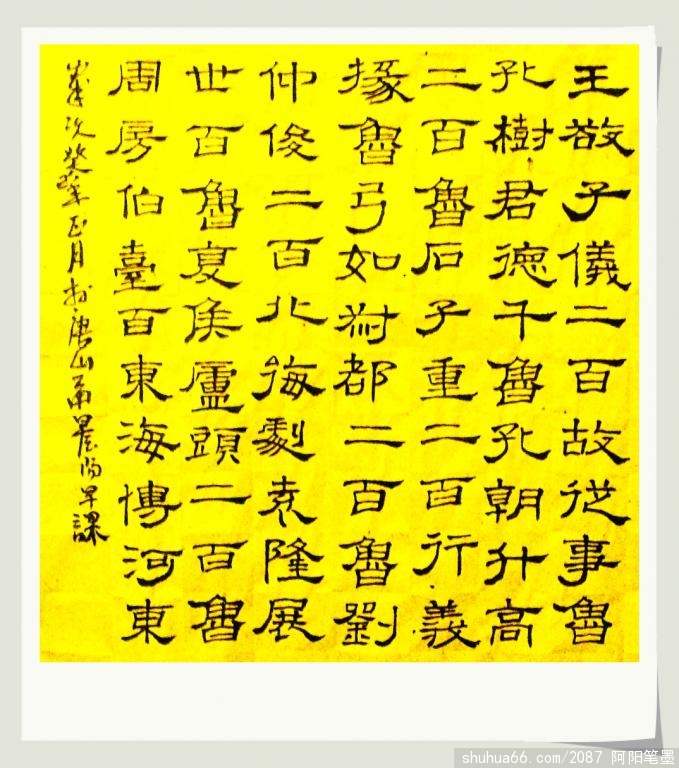 王敞子儀二百故從事魯
孔樹君德千魯孔朝升高
二百魯石子重二百行義
掾魯弓如叔都二百魯劉
仲俊二百北海劇袁隆展
世百魯夏侯廬頭二百魯
周房伯臺百東海傅河東
歲次正月於唐山早課
shuhua66.com/2087 阿阳笔墨